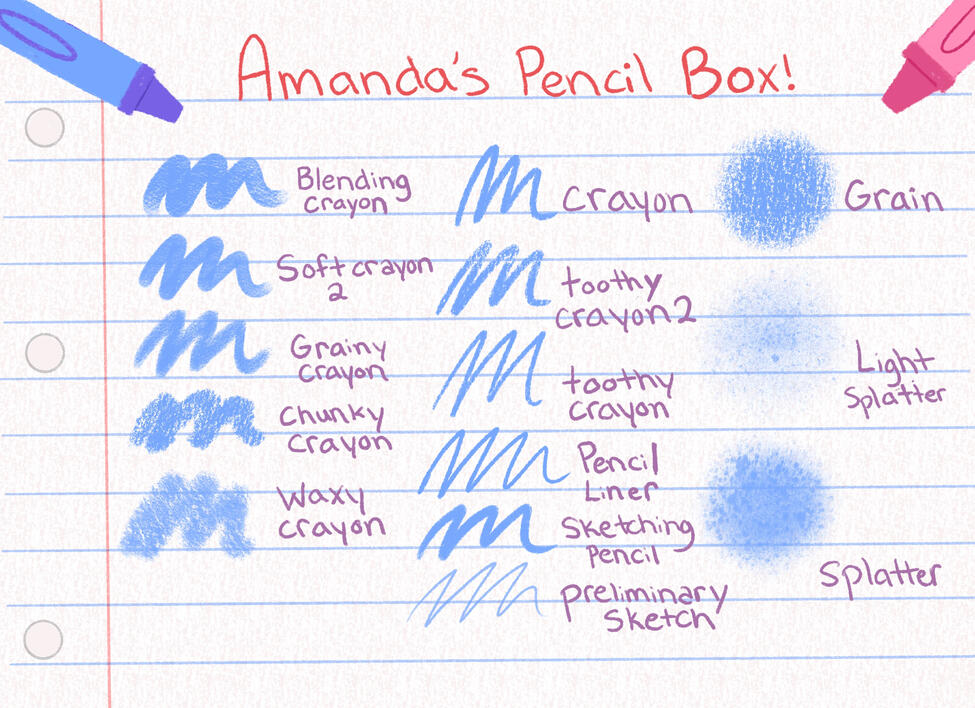 Amanda's Pencil Box!
Blending
crayon
Soft crayon
2
Grainy
crayon
Chunky
crayon
Waxy
crayon
crayon
toothy
crayon 2
toothy
crayon
Pencil
Liner
Sketching
Pencil
preliminary
Sketch
Grain
Light
Splatter
Splatter